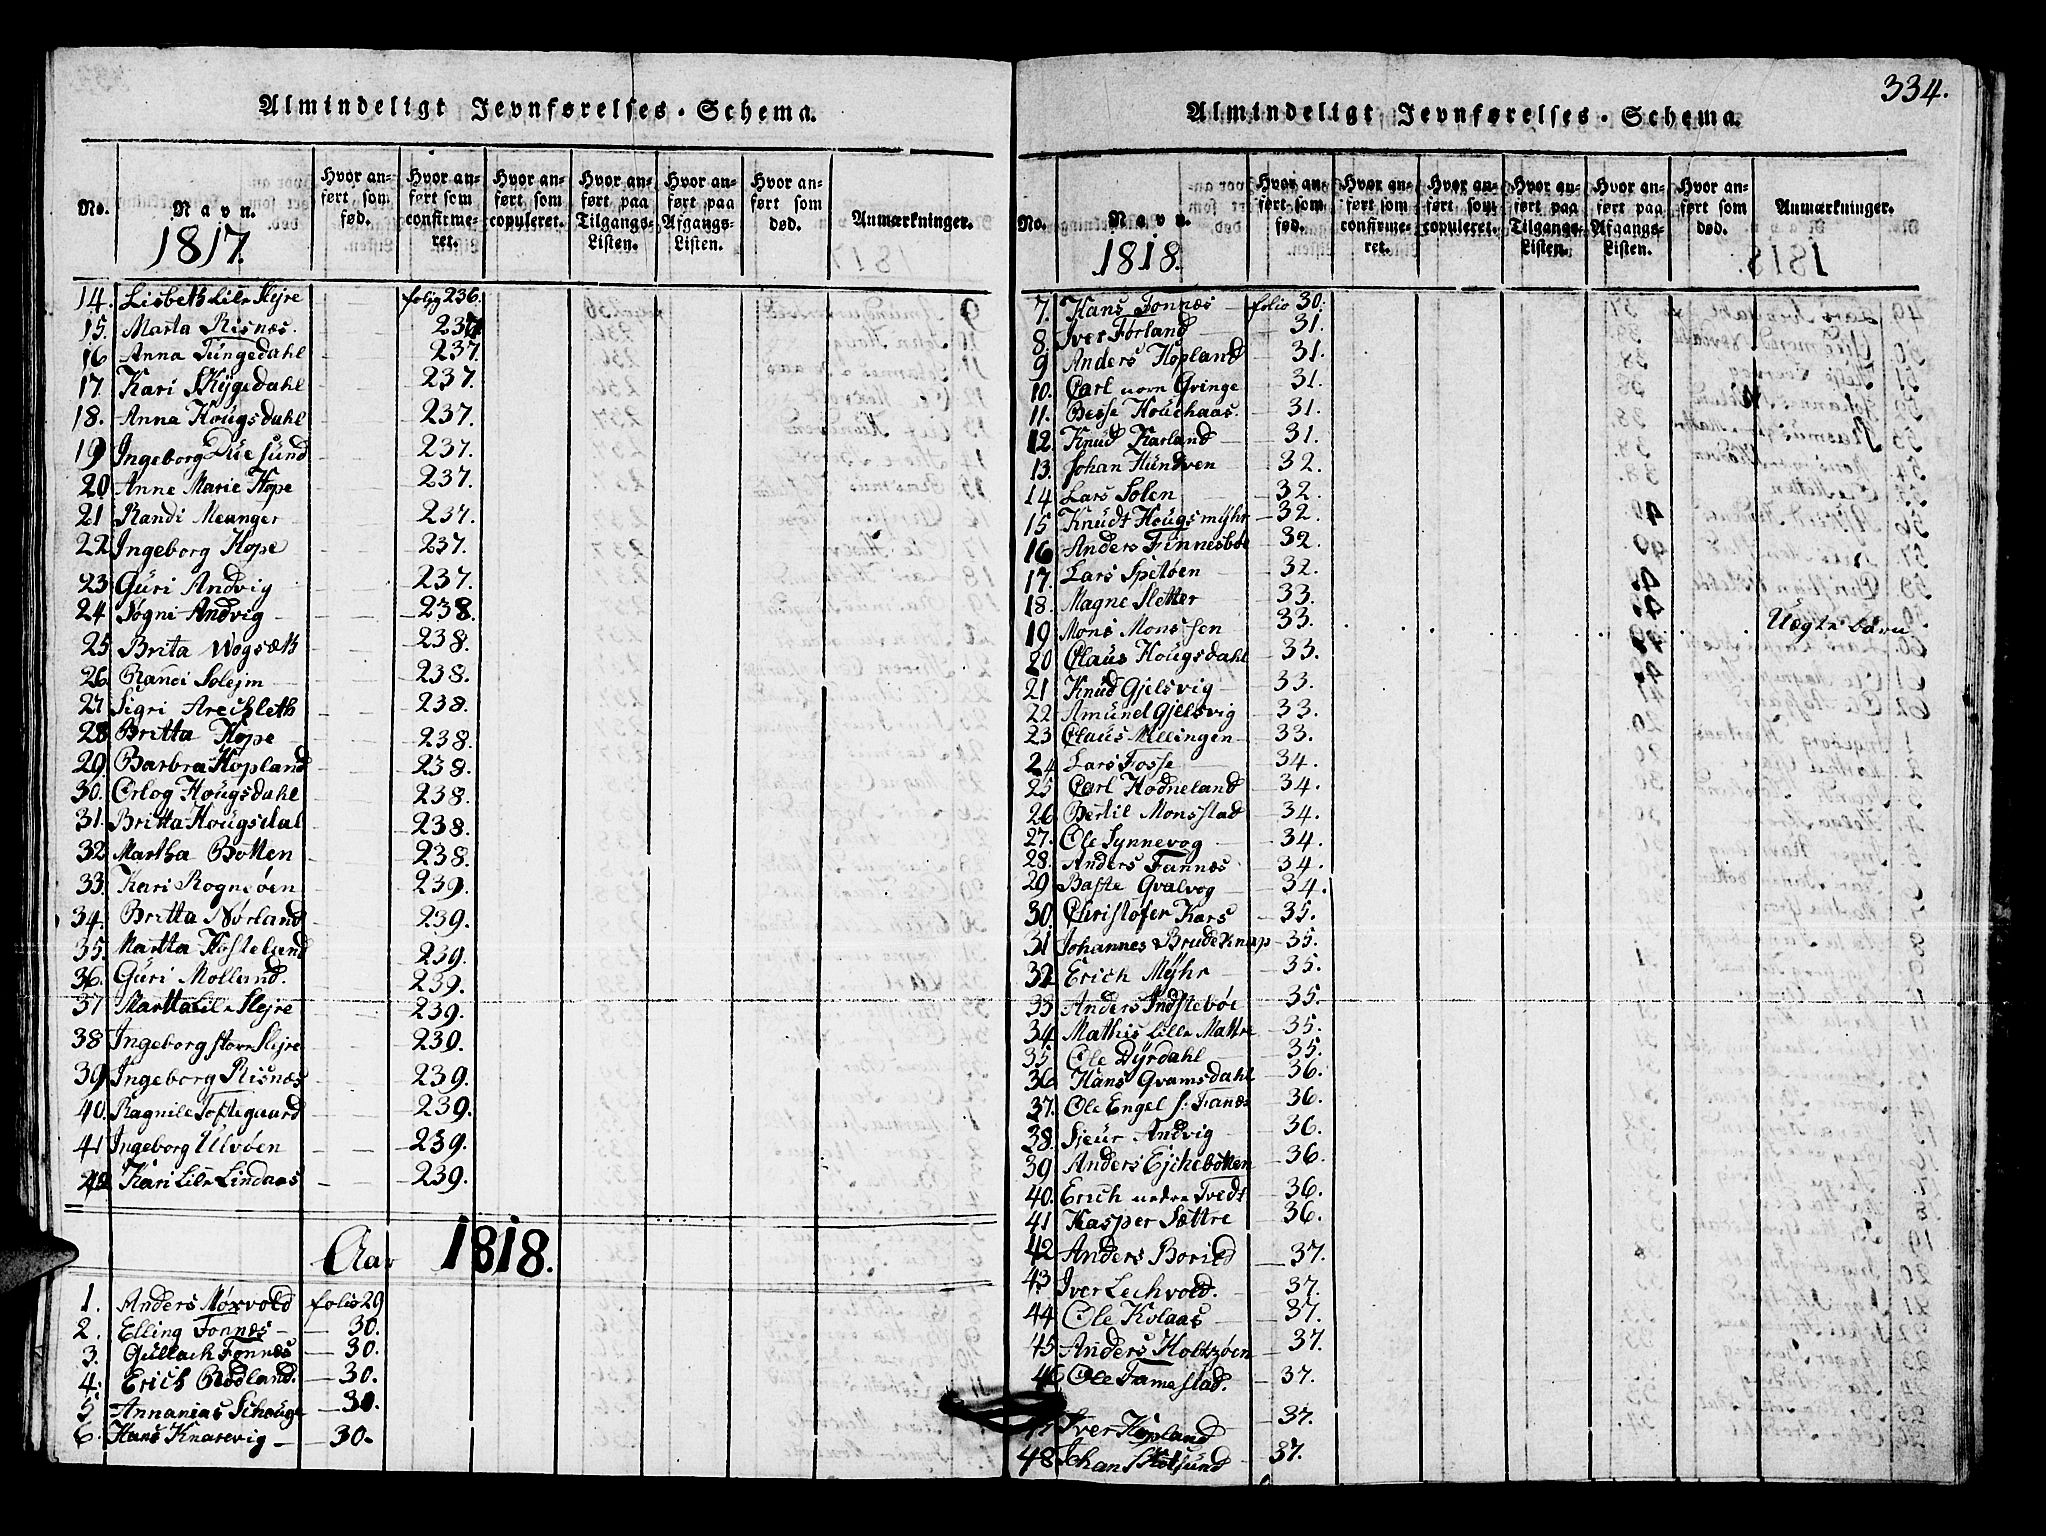 Almindeligt Jevnførelses-Schema.
No. Navn. 1817. Hvor anført som fød. Hvor anført som confirmeret. Hvor anført som copuleret. Hvor anført paa Tilgangs-Listen. Hvor anført paa Afgangs-Listen. Hvor anført som død. Anmærkninger.
14. Lisbeth Lile Slejre folig 236.
15. Marta Risnæs. 237
16 Anna Tungedahl 237.
17. Kari Skÿgedahl 237.
18. Anna Hougsdahl 237.
19 Ingeborg Duesund 237.
20 Anne Marie Hope 237.
21 Randi Meanger 237.
22 Ingeborg Hope 237.
23 Guri Andvig 237.
24 Søgni Andvig 238.
25 Brita Wogsæth 238.
26 Randi Solejm 238.
27 Sigri Arechleth 238.
28 Britta Hope 238.
29 Barbra Hopland 238.
30. Orlog Hougsdahl 238.
31. Britta Hougsdal 238.
32 Martha Botten 238.
33. Kari Rognøen 239.
34. Britta Nørland 239.
35. Martta Hosteland 239.
36. Guri Molland. 239.
37 Martta Lile Slejre 239.
38 Ingeborg store Slejre 239.
39 Ingeborg Risnæs 239.
40. Ragnile Toftegaard 239.
41 Ingeborg Ulvøen 239.
42 Kari Lile Lindaas 239.
Aar 1818.
1. Anders Moxvold folio 29
2. Elling Fonnæs 30.
3. Gullach Fonnæs 30.
4. Erich Rødland. 30.
5 Annanias Schouge 30.
6. Hans Knarevig 30.
334.
Almindeligt Jevnførelses-Schema.
No. Navn. 1818. Hvor anført som fød. Hvor anført som confirmeret. Hvor anført som copuleret. Hvor anført paa Tilgangs-Listen. Hvor anført paa Afgangs-Listen. Hvor anført som død. Anmærkninger.
7. Hans Fonnæs folio 30.
8. Iver Førland 31.
9 Anders Hopland 31.
10. Carl Qvinge 31.
11. Besse Houchaas. 31.
12. Knud Karland 31.
13. Johan Hundven 32.
14 Lars Solen 32.
15 Knudt Hougsmÿhr 32.
16 Anders Finnesbøe 32.
17. Lars Spitøen 32.
18. Magne Sletter 33.
19 Mons Monssen 33. Uægte barn
20 Claus Hougsdahl 33.
21 Knud Gjelsvig 33.
22 Amund Gjelsvig 33.
23 Claus Mllingen 33.
24 Lars Fosse 34.
25 Carl Hodneland 34.
26 Bertil Monsstad 34.
27. Ole Synnevog 34.
28. Anders Fannæs 34.
29 Baste Qvalvog 34.
30. Christofer Kars 35.
31 Johannes Brudeknap 35.
32 Erich Mÿhr 35.
33 Anders Indstebøe 35.
34 Mathis Lille Mattre 35.
35. Ole Dÿrdahl 35.
36 Hans Qvamsdahl 36.
37. Ole Engel s: Fanæs 36.
38. Sjeur Andvig 36.
39 Anders Ejchebotten 36.
40. Erich nedre Tvedt 36.
41 Kasper Sættre 36.
42 Anders Boried 37.
43 Iver Lechvold. 37.
44 Ole Kolaas 37.
45 Anders Holtzøen 37.
46 Ole Famestad. 37.
47 Iver Hopland 37.
48 Johan Skotsund 37.